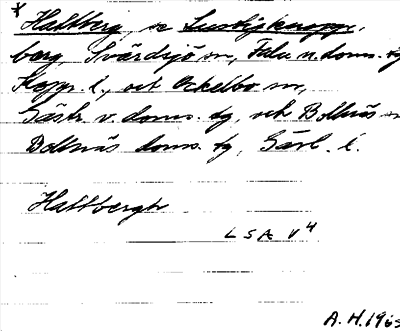 * Hallberg, se Lustigknopp-
berg, Svärdsjö sn, Falu n. doms. tg
Kopp. l., o ett Ockelbo sn,
Gästr. v. doms. tg, och Bollnäs sn
Bollnäs doms. tg, Gävl. l.
Hallbergh
LSA V 4
A. H. 1965